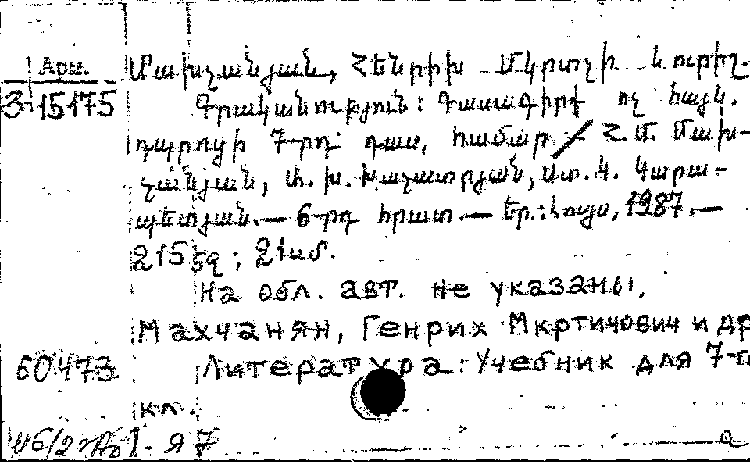 Арм.
3-15175
Մախչանյան, Հենրիխ Մկրտչի և ուրիշ.
Գրականություն: Դասագիրք ոչ հայկ.
դպրոցի 7-րդ դաս. համար / Հ.Մ. Մախ-
չանյան, Ա. Խ. Խաչատրյան, Ստ. Կ. Կարա-
պետյան.— 6-րդ հրատ.— Եր.: Լույս, 1987.—
215 էջ; 21սմ.
На обл. авт. не указаны.
Махчанян, Генрих Мкртичович и др
Литература: Учебник для 7-го
60473
кл.